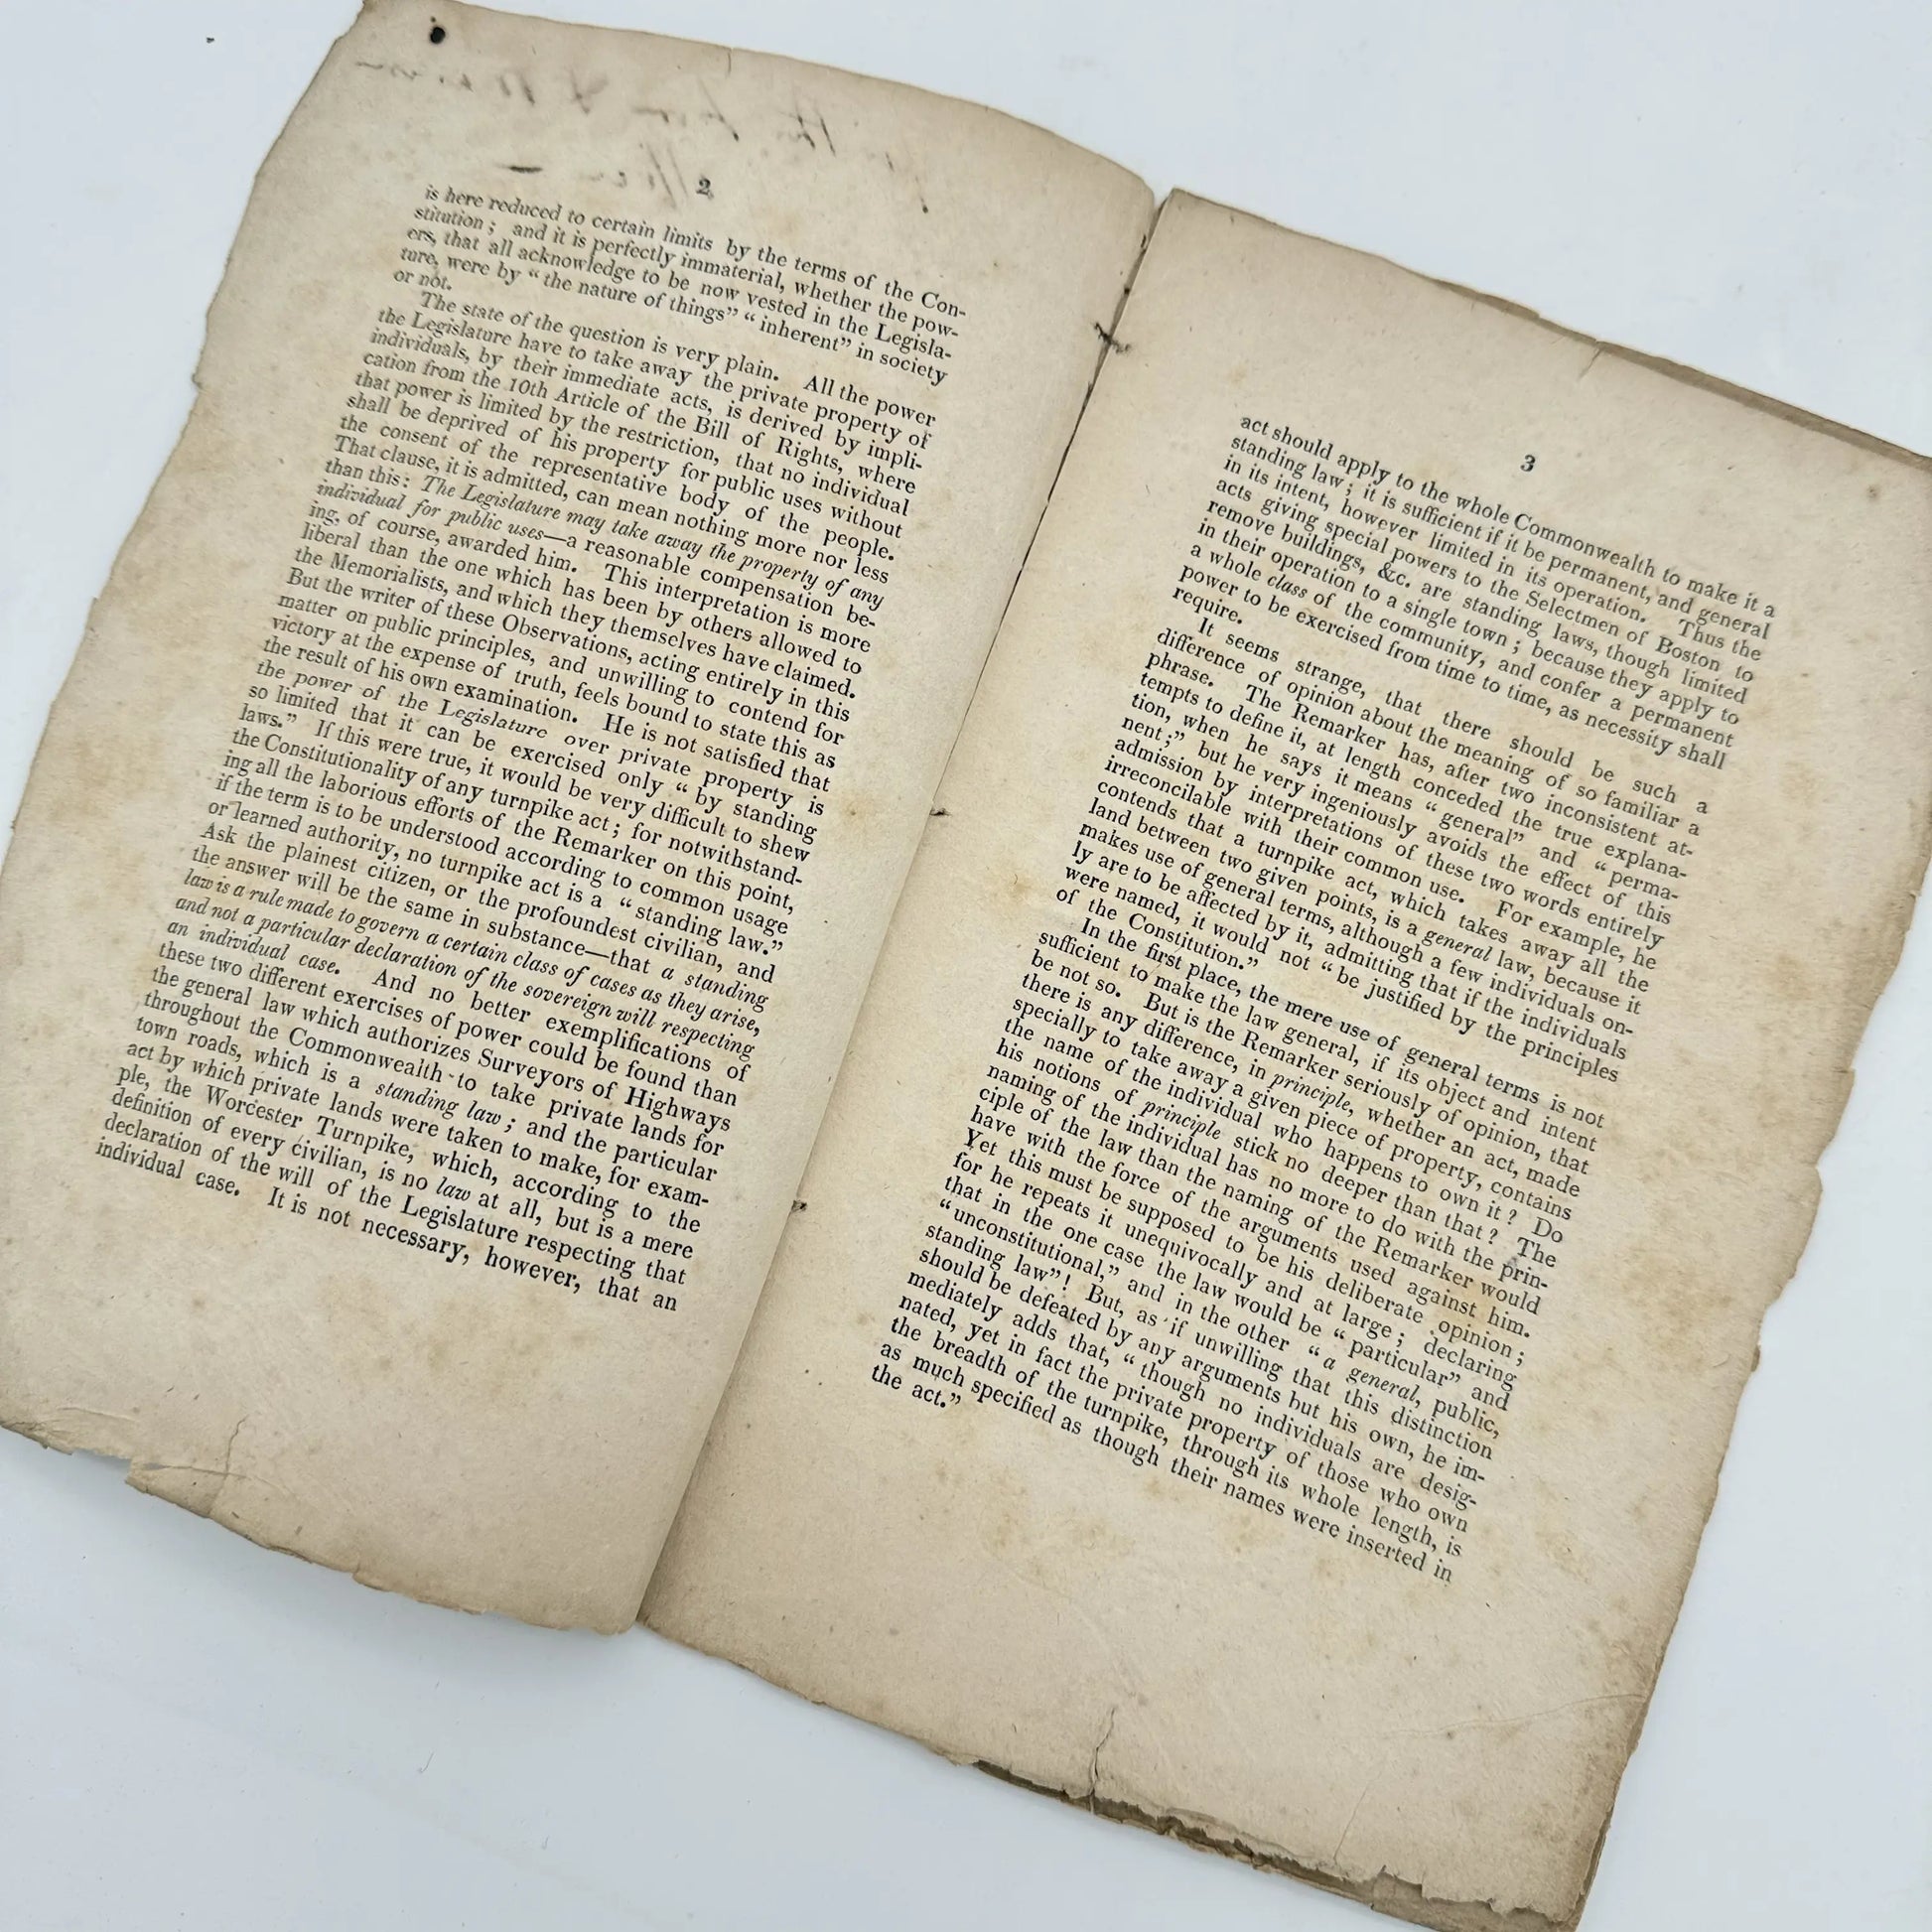 2
is here reduced to certain limits by the terms of the Con-
stitution; and it is perfectly immaterial, whether the pow-
ers, that all acknowledge to be now vested in the Legisla-
ture, were by “the nature of things” “inherent” in society
or not.
The state of the question is very plain. All the power
the Legislature have to take away the private property of
individuals, by their immediate acts, is derived by impli-
cation from the 10th Article of the Bill of Rights, where
that power is limited by the restriction, that no individual
shall be deprived of his property for public uses without
the consent of the representative body of the people.
That clause, it is admitted, can mean nothing more nor less
than this: The Legislature may take away the property of any
individual for public uses—a reasonable compensation be-
ing, of course, awarded him. This interpretation is more
liberal than the one which has been by others allowed to
the Memorialists, and which they themselves have claimed.
But the writer of these Observations, acting entirely in this
matter on public principles, and unwilling to contend for
victory at the expense of truth, feels bound to state this as
the result of his own examination. He is not satisfied that
the power of the Legislature over private property is
so limited that it can be exercised only “by standing
laws.” If this were true, it would be very difficult to shew
the Constitutionality of any turnpike act; for notwithstand-
ing all the laborious efforts of the Remarker on this point,
if the term is to be understood according to common usage
or learned authority, no turnpike act is a “standing law.”
Ask the plainest citizen, or the profoundest civilian, and
the answer will be the same in substance—that a standing
law is a rule made to govern a certain class of cases as they arise,
and not a particular declaration of the sovereign will respecting
an individual case. And no better exemplifications of
these two different exercises of power could be found than
the general law which authorizes Surveyors of Highways
throughout the Commonwealth to take private lands for
town roads, which is a standing law; and the particular
act by which private lands were taken to make, for exam-
ple, the Worcester Turnpike, which, according to the
definition of every civilian, is no law at all, but is a mere
declaration of the will of the Legislature respecting that
individual case. It is not necessary, however, that an
3
act should apply to the whole Commonwealth to make it a
standing law; it is sufficient if it be permanent, and general
in its intent, however limited in its operation. Thus the
acts giving special powers to the Selectmen of Boston to
remove buildings, &c. are standing laws, though limited
in their operation to a single town; because they apply to
a whole class of the community, and confer a permanent
power to be exercised from time to time, as necessity shall
require.
It seems strange, that there should be such a
difference of opinion about the meaning of so familiar a
phrase. The Remarker has, after two inconsistent at-
tempts to define it, at length conceded the true explana-
tion, when he says it means “general” and “perma-
nent;” but he very ingeniously avoids the effect of this
admission by interpretations of these two words entirely
irreconcilable with their common use. For example, he
contends that a turnpike act, which takes away all the
land between two given points, is a general law, because it
makes use of general terms, although a few individuals on-
ly are to be affected by it, admitting that if the individuals
were named, it would not “be justified by the principles
of the Constitution.”
In the first place, the mere use of general terms is not
sufficient to make the law general, if its object and intent
be not so. But is the Remarker seriously of opinion, that
there is any difference, in principle, whether an act, made
specially to take away a given piece of property, contains
the name of the individual who happens to own it? Do
his notions of principle stick no deeper than that? The
naming of the individual has no more to do with the prin-
ciple of the law than the naming of the Remarker would
have with the force of the arguments used against him.
Yet this must be supposed to be his deliberate opinion;
for he repeats it unequivocally and at large; declaring
that in the one case the law would be “particular” and
“unconstitutional,” and in the other “a general, public,
standing law”! But, as if unwilling that this distinction
should be defeated by any arguments but his own, he im-
mediately adds that, “though no individuals are desig-
nated, yet in fact the private property of those who own
the breadth of the turnpike, through its whole length, is
as much specified as though their names were inserted in
the act.”